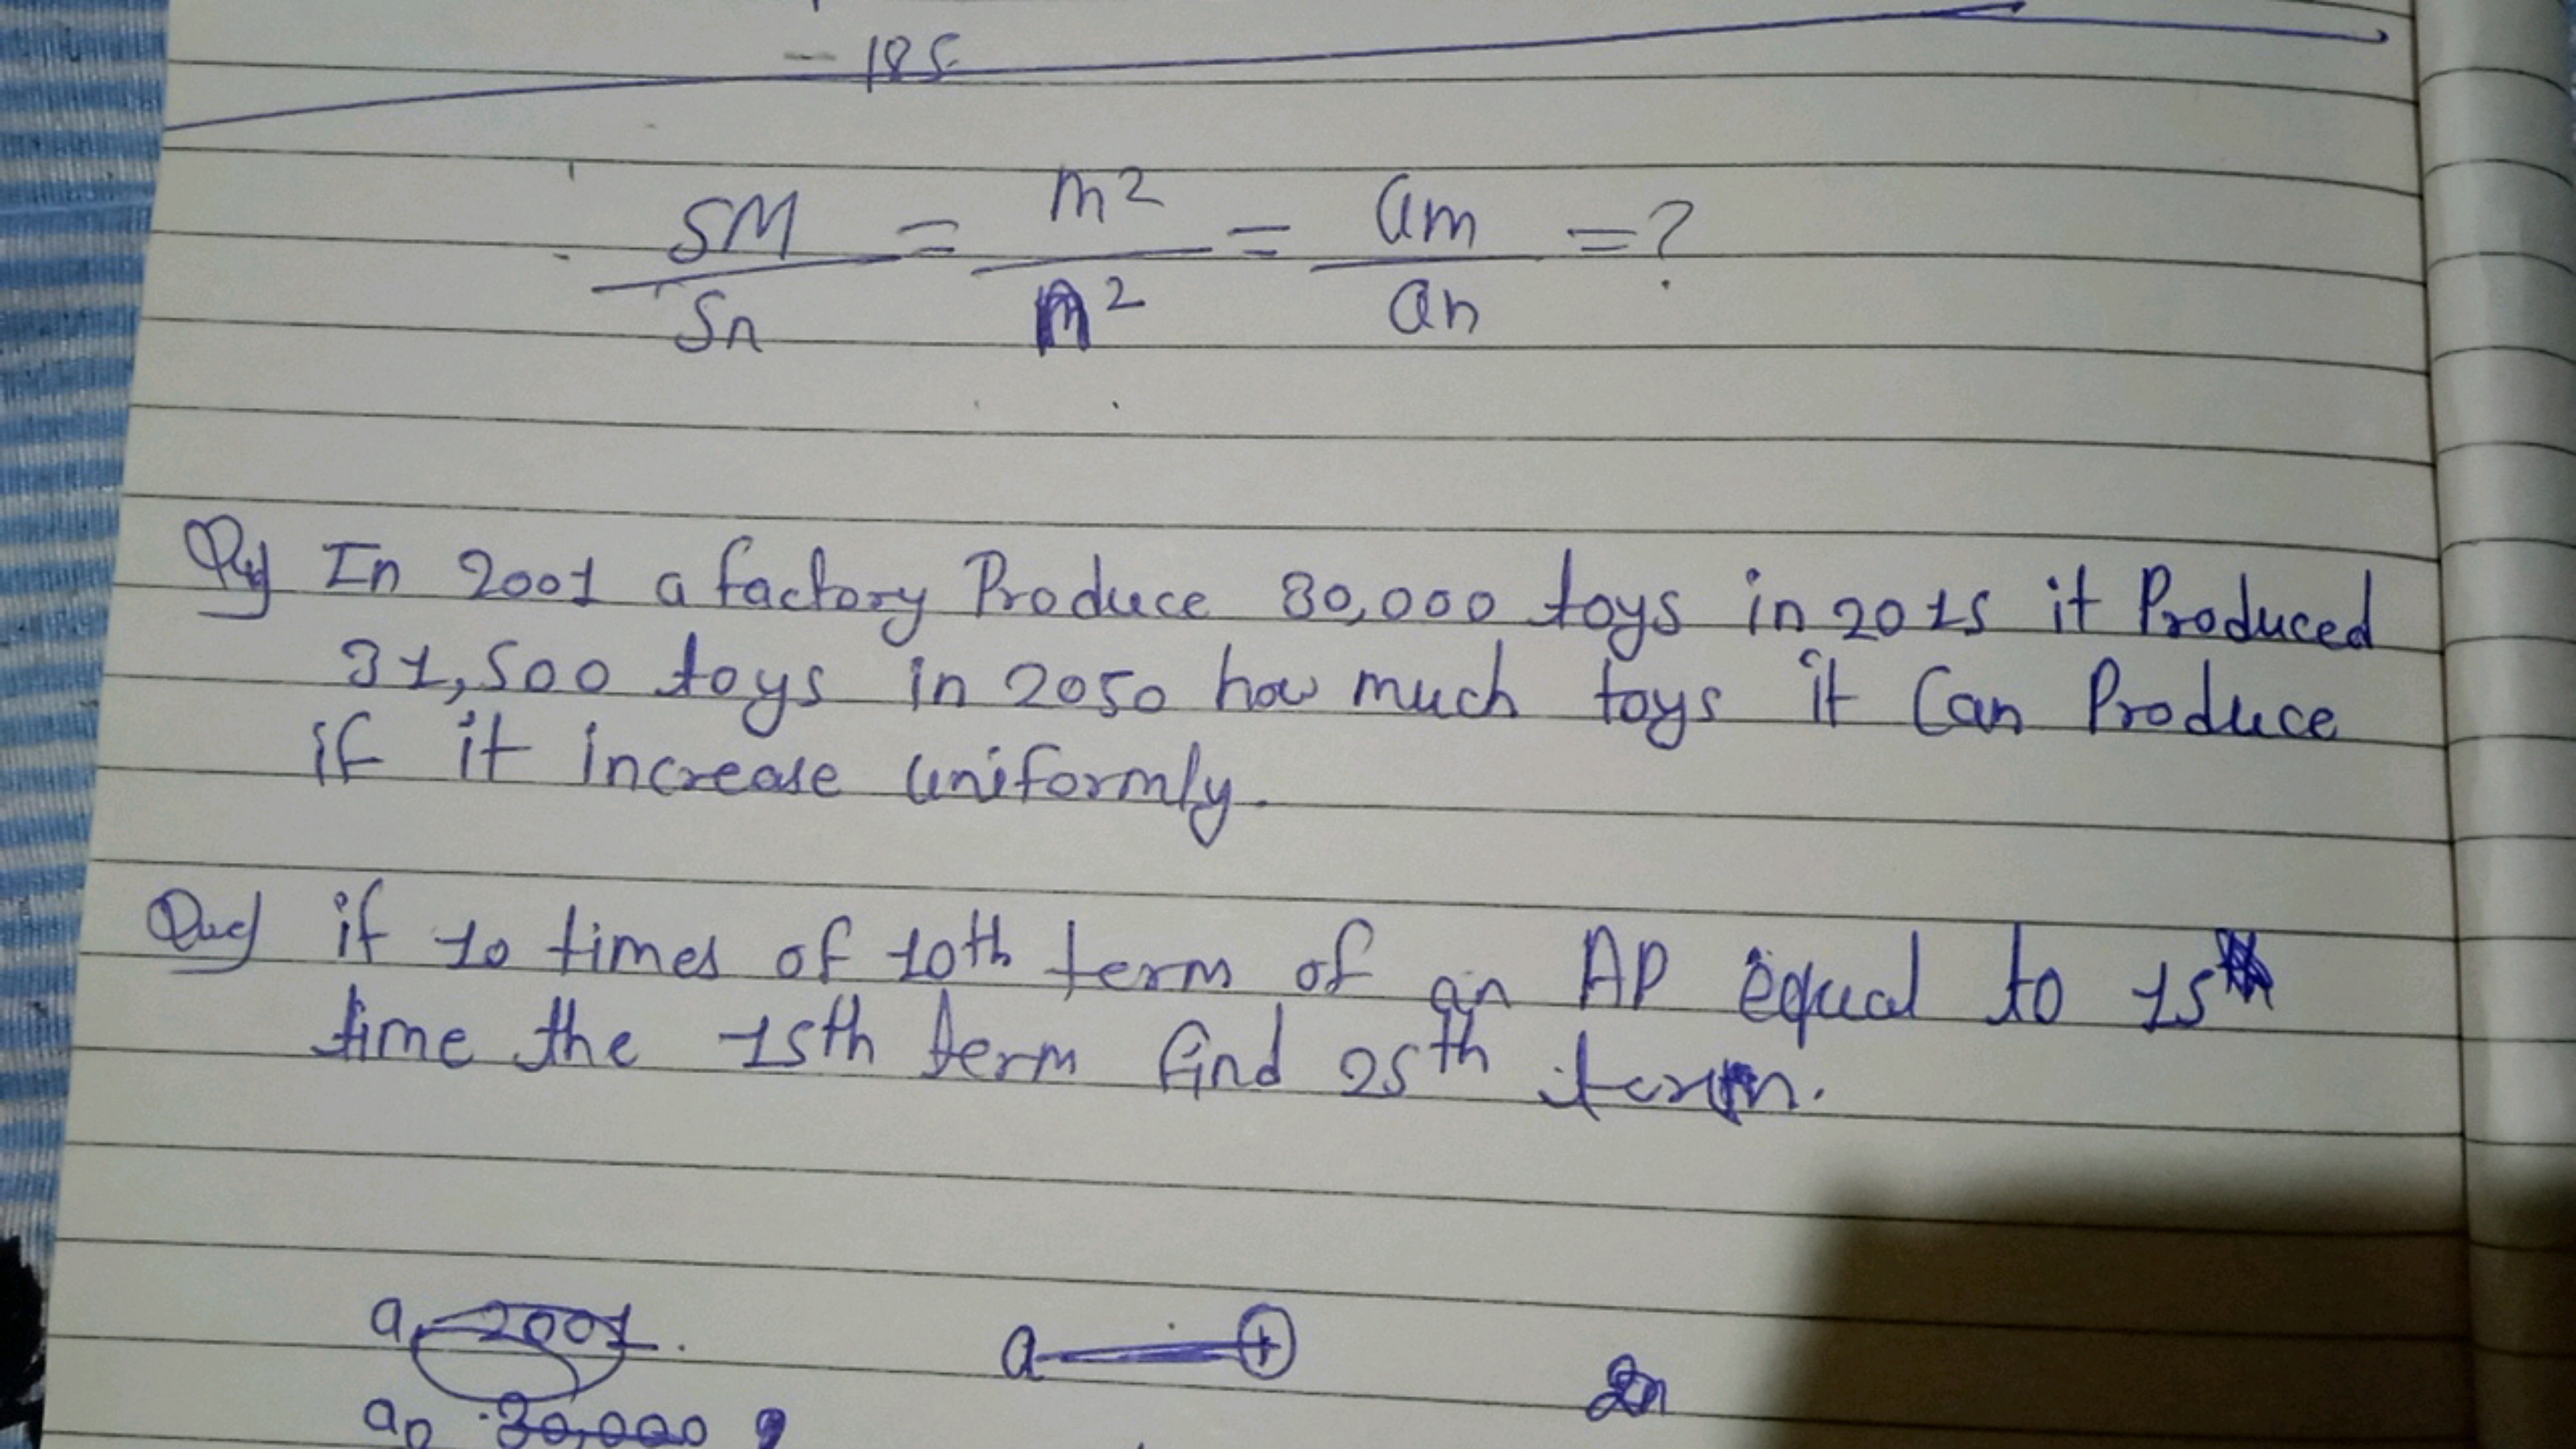 - 185
SM = m² = am = ?
Sn n² an
Que) In 2001 a factory Produce 30,000 toys in 2015 it Produced
31,500 toys in 2050 how much toys it Can Produce
if it increase uniformly.
Que) if 10 times of 10th term of an AP equal to 15
time the 15th term find 25th term.
a, 2001.
a +
an 30,000